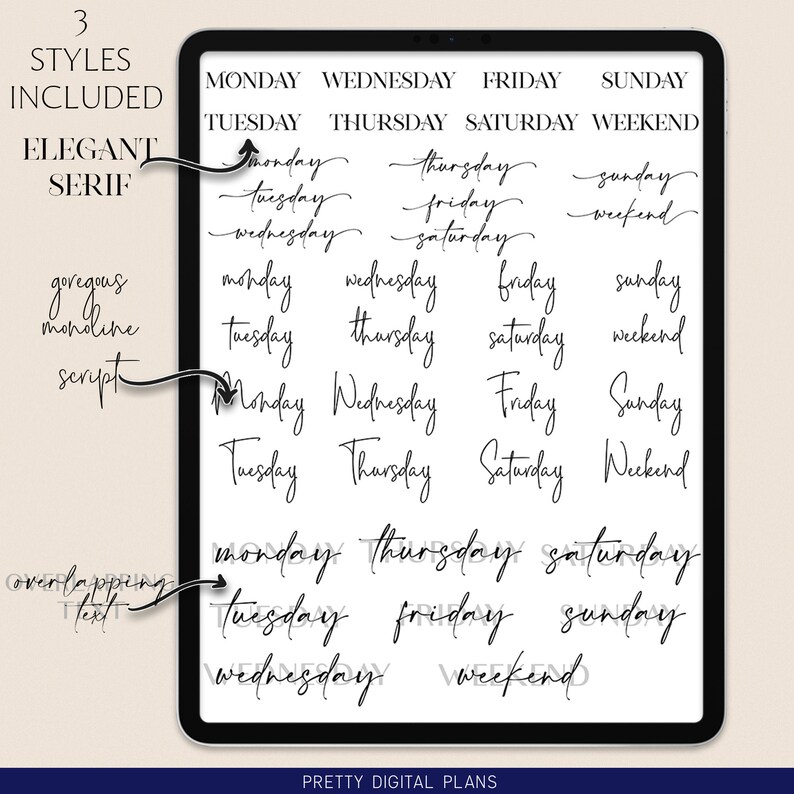 3
STYLES
INCLUDED
ELEGANT
SERIF
goregous
monoline
script
OVERLAPPING overlapping
TEXT text
MONDAY WEDNESDAY FRIDAY SUNDAY
TUESDAY THURSDAY SATURDAY WEEKEND
monday thursday sunday
tuesday friday weekend
wednesday saturday
monday wednesday friday sunday
tuesday thursday saturday weekend
Monday Wednesday Friday Sunday
Tuesday Thursday Saturday Weekend
MONDAY monday THURSDAY thursday SATURDAY saturday
TUESDAY tuesday FRIDAY friday SUNDAY sunday
WEDNESDAY wednesday WEEKEND weekend
PRETTY DIGITAL PLANS